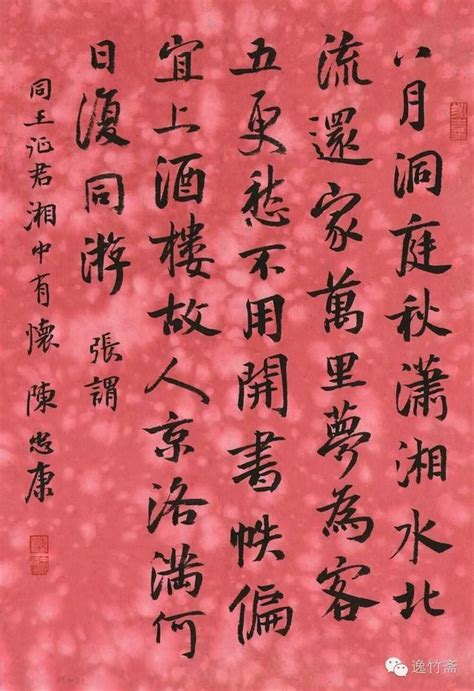 八月洞庭秋瀟湘水北
流還家萬里夢為客
五更愁不用開書帙偏
宜上酒樓故人京洛滿何
日復同游 張謂
同王征君湘中有懷 陳忠康
逸竹斋